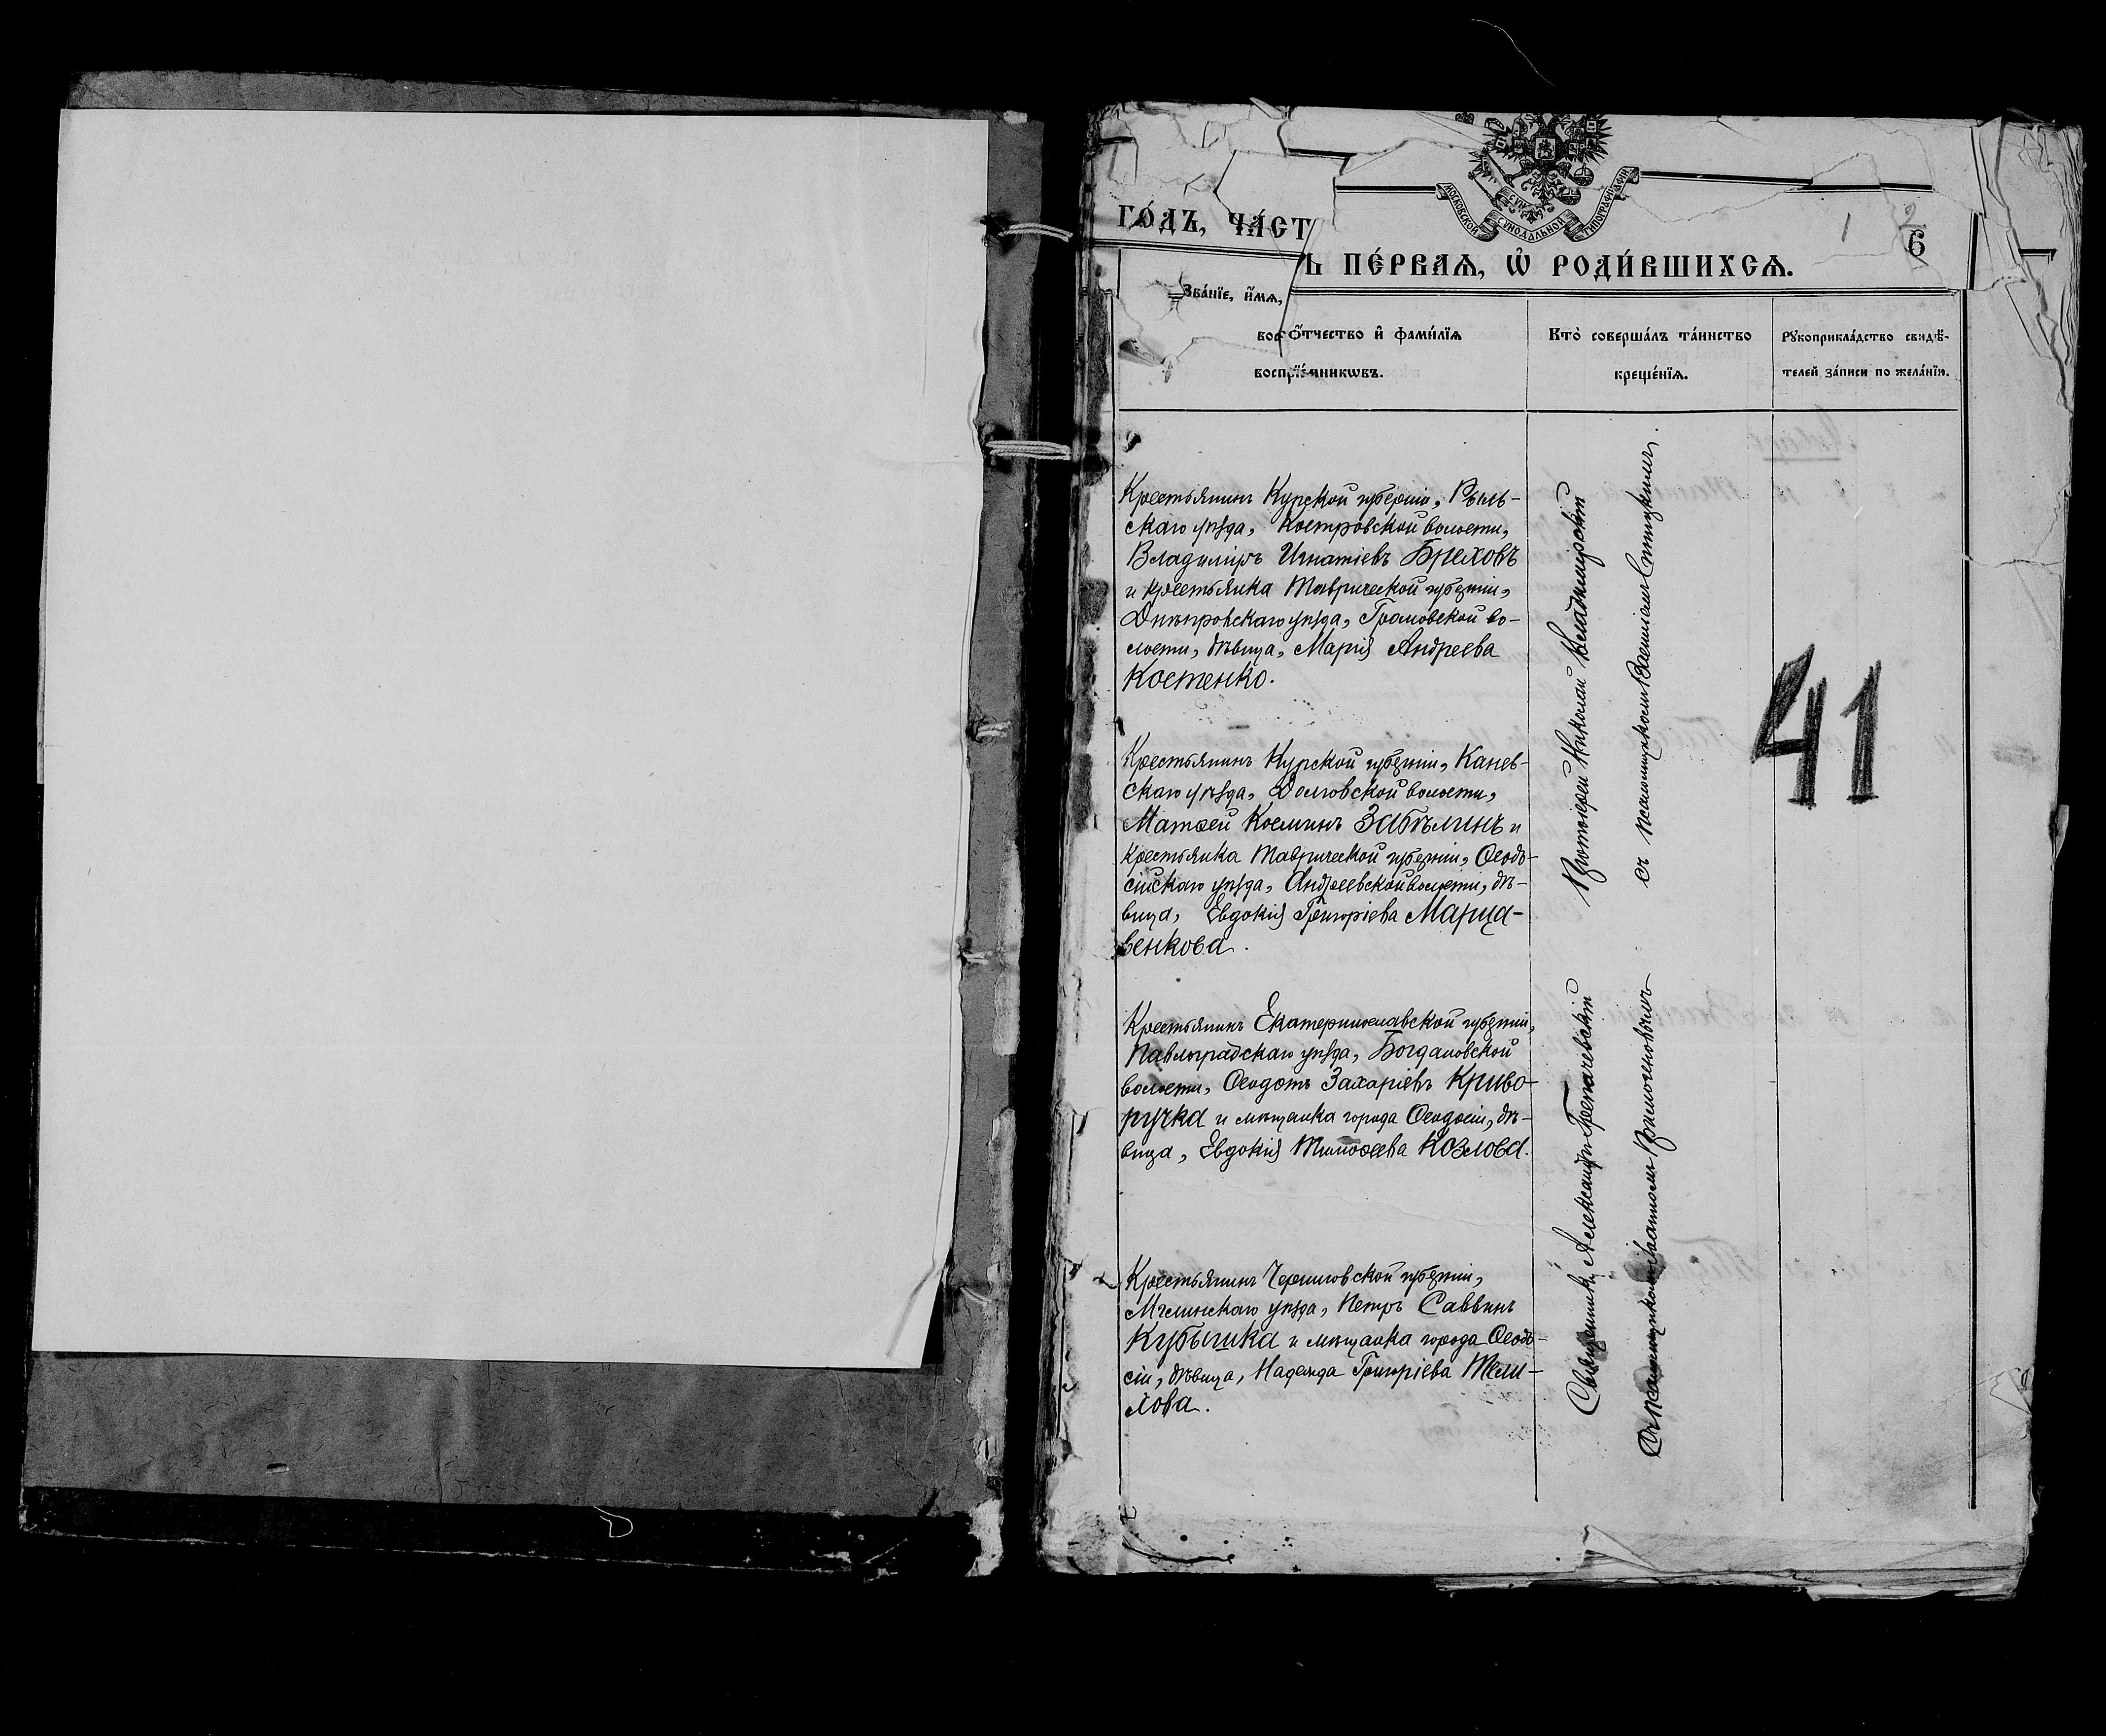 МОСКОВСКОЙ СѴНОДАЛЬНОЙ ТИПОГРАФІИ
1 2
6
ГО́ДЪ, ЧА́СТ
Ь ПЕ́РВАѦ, Ѡ҆ РОДИ́ВШИХСѦ.
Зва́нїе, и҆́мѧ,
ѻ҆́тчество и҆ фами́лїѧ
воспрїе́мникѡвъ.
Кто̀ соверша́лъ та́инство
креще́нїѧ.
Рꙋкоприкла́дство свидѣ́-
телей за́писи по жела́нїю.
Крестьянинъ Курской губерніи, Рыль-
скаго уѣзда, Костровской волости,
Владиміръ Игнатіевъ Бреховъ
и крестьянка Таврической губерніи,
Днѣпровскаго уѣзда, Громовской во-
лости, дѣвица, Марія Андреева
Костенко.
Крестьянинъ Курской губерніи, Канев-
скаго уѣзда, Долговской волости,
Матѳей Косминъ Забѣлинъ и
крестьянка Таврической губерніи, Ѳеодо-
сійскаго уѣзда, Андреевской волости, дѣ-
вица, Евдокія Григоріева Марца-
венкова.
Крестьянинъ Екатеринославской губерніи,
Павлоградскаго уѣзда, Богдановской
волости, Ѳеодотъ Захаріевъ Криво-
ручка и мѣщанка города Ѳеодосіи, дѣ-
вица, Евдокія Тимоѳеева Козлова.
Крестьянинъ Черниговской губерніи,
Мглинскаго уѣзда, Петръ Саввинъ
Кубышка и мѣщанка города Ѳеодо-
сіи, дѣвица, Надежда Григоріева Тели-
лова.
Протоіерей Николай Владимірскій
съ псаломщикомъ Василіемъ Спицкимъ.
Священникъ Александръ Трепачевскій
съ псаломщикомъ
41